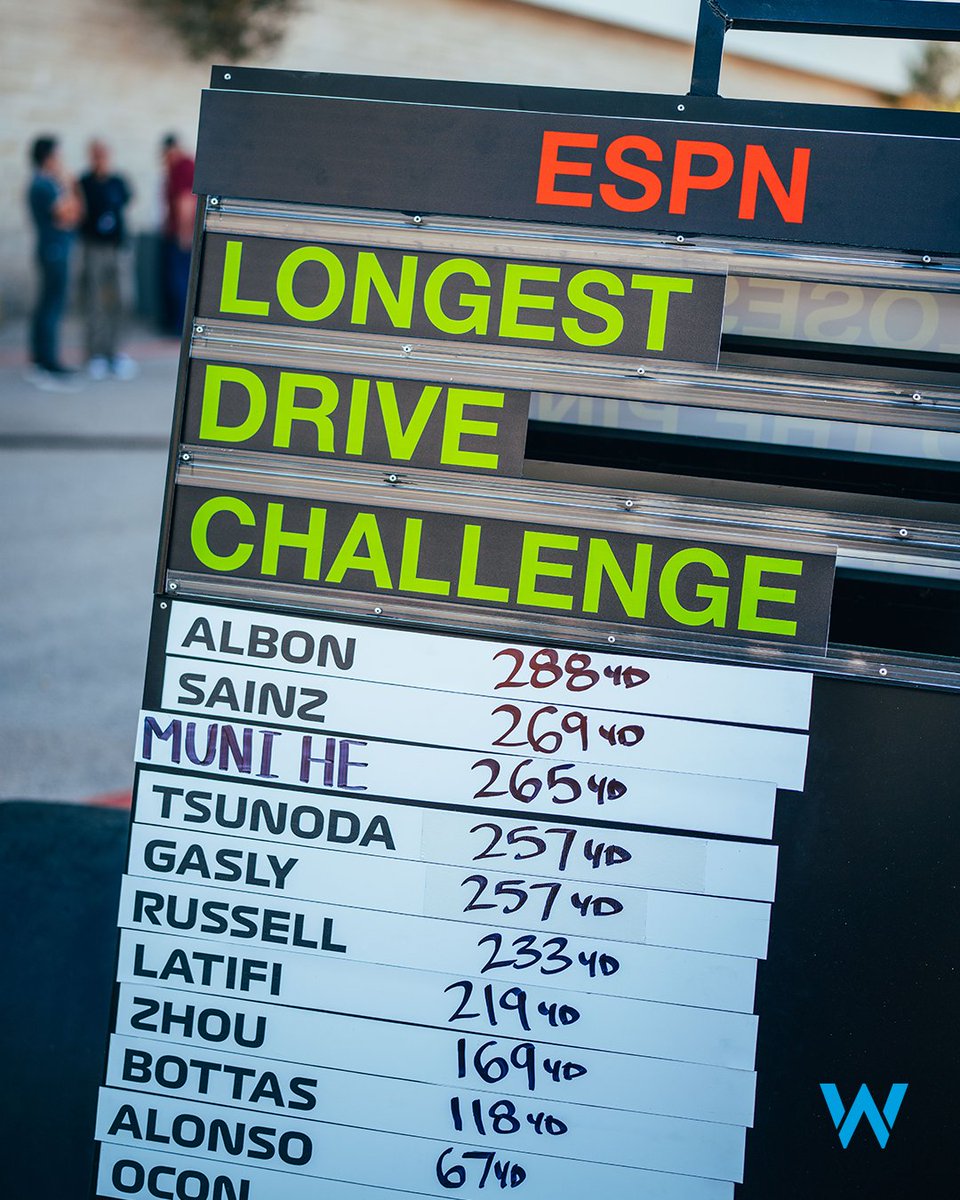 ESPN
LONGEST
DRIVE
CHALLENGE
ALBON 288 YD
SAINZ 269 YD
MUNI HE 265 YD
TSUNODA 257 YD
GASLY 257 YD
RUSSELL 233 YD
LATIFI 219 YD
ZHOU 169 YD
BOTTAS 118 YD
ALONSO 67 YD
OCON
W